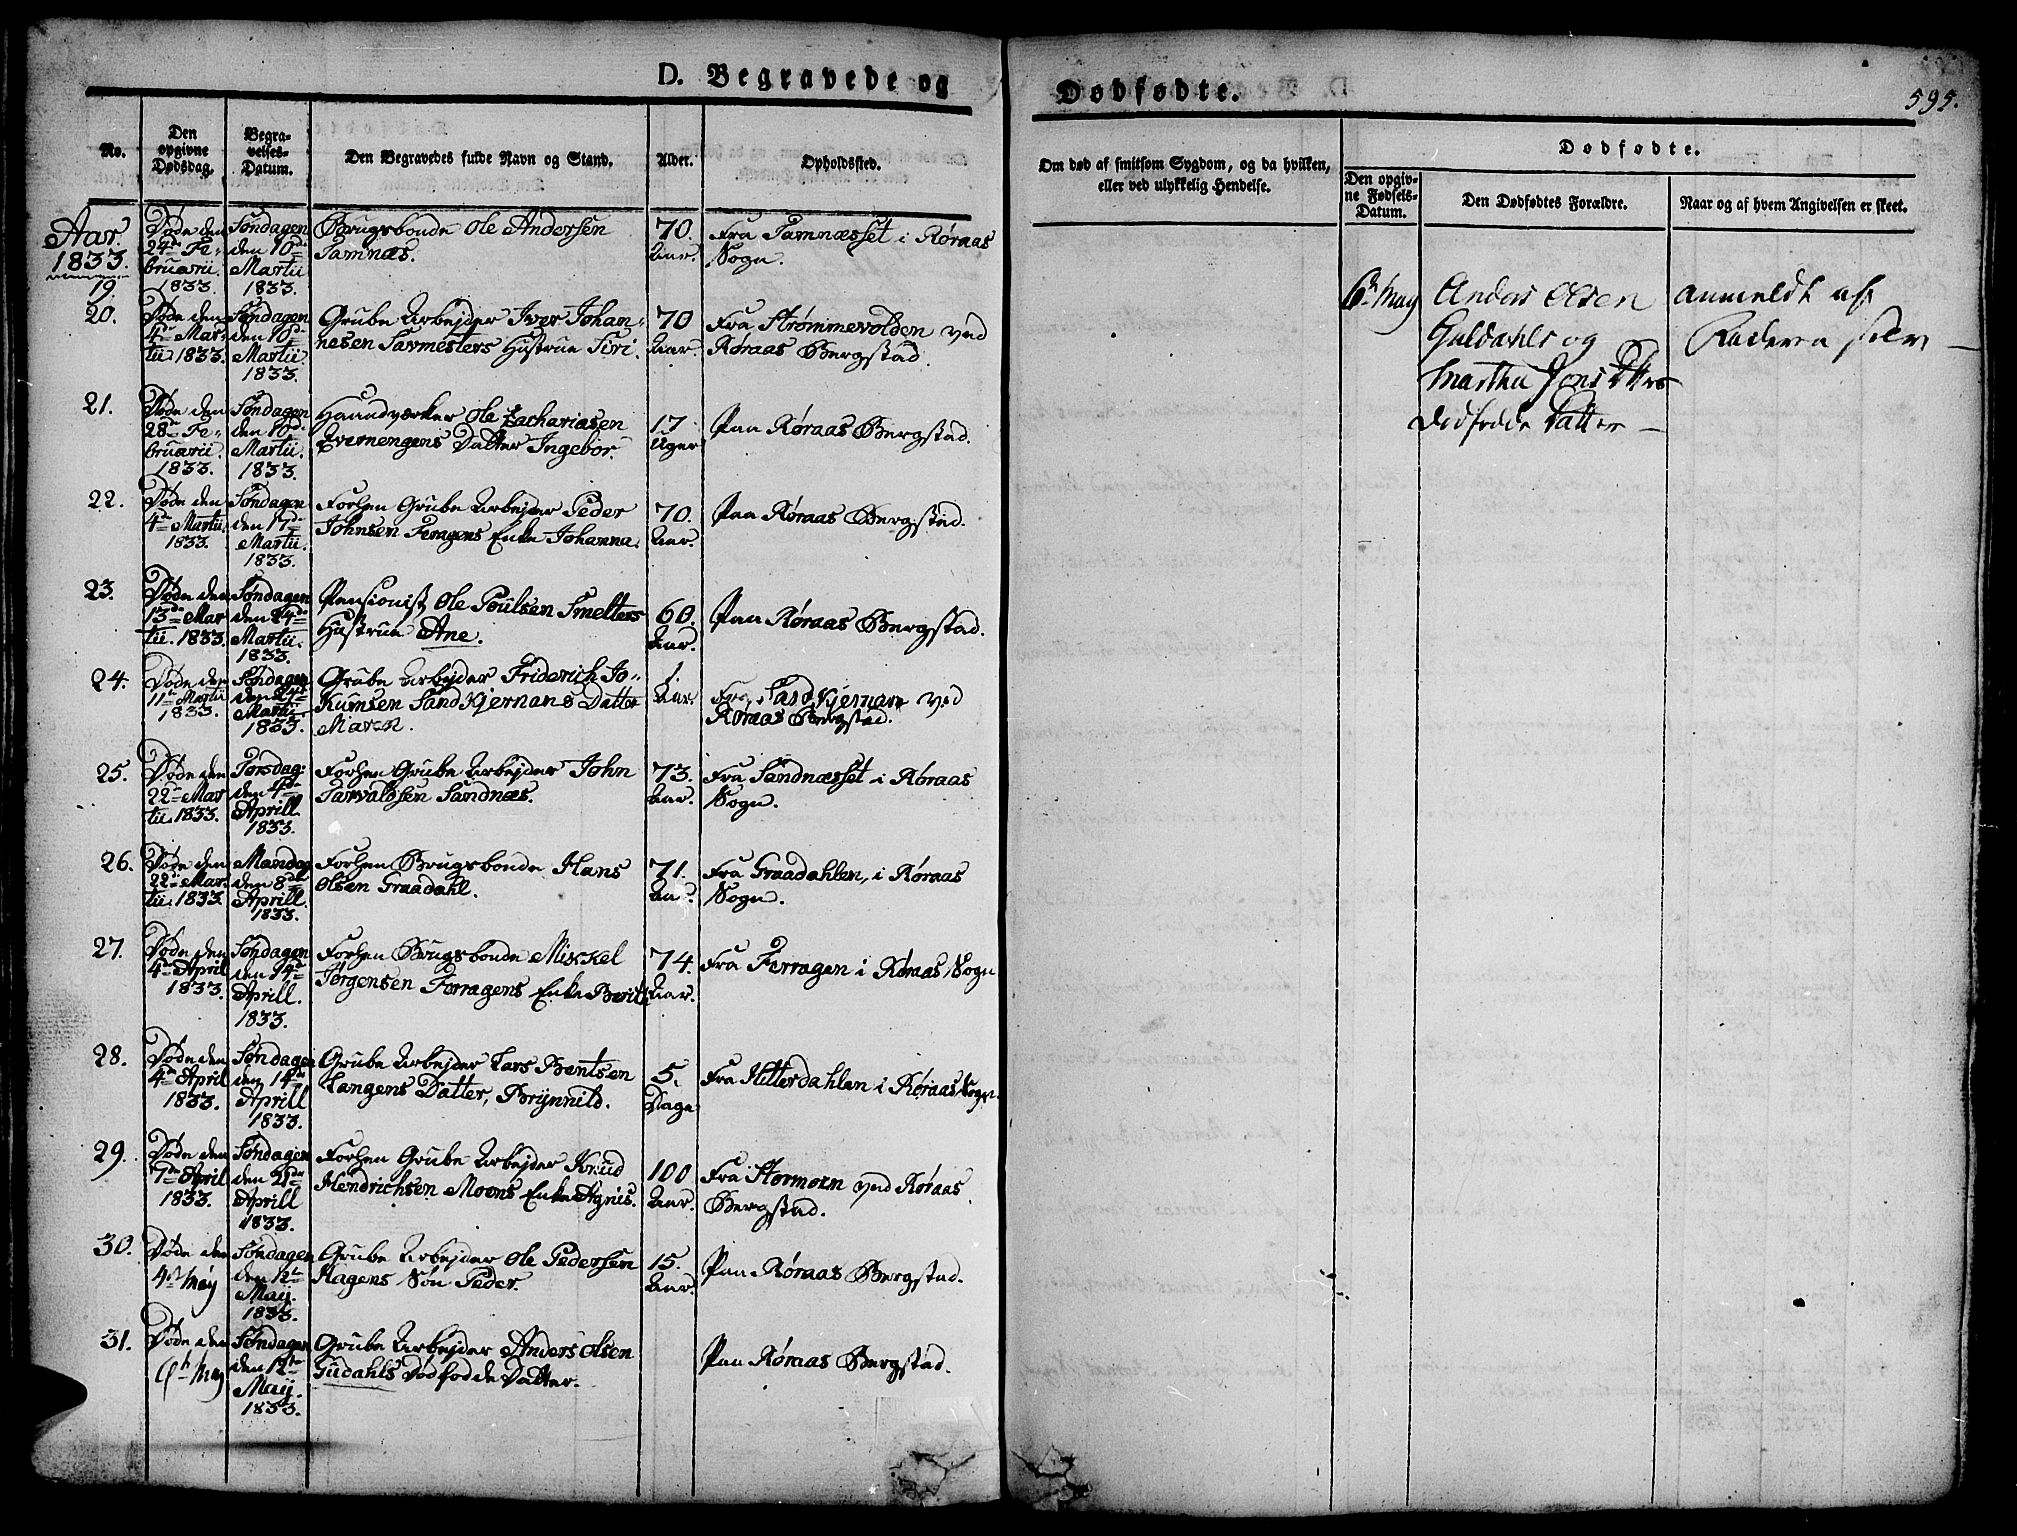 D. Begravede og
Dødfødte.
595.
No.
Den opgivne Dødsdag.
Begravelses-Datum.
Den Begravedes fulde Navn og Stand.
Alder.
Opholdssted.
Om død af smitsom Sygdom, og da hvilken,
eller ved ulykkelig Hendelse.
Dødfødte.
Den opgivne Fødsels-Datum.
Den Dødfødtes Forældre.
Naar og af hvem Angivelsen er skeet.
Aar 1833.
19. Døde den 24de Februarii 1833. Søndagen den 10de Martii 1833. Brugsbonde Ole Andersen Tamnæs. 70. Aar. Fra Tamnæsset i Røraas Sogn.
20. Døde den 4de Martii 1833. Søndagen den 10de Martii 1833. Grube Arbejder Iver Johannesen Savmesters Hustrue Siri. 70 Aar. Fra Strømmevolden ved Røraas Bergstad.
21. Døde den 28de Februarii 1833. Søndagen den 10de Martii. 1833. Haandværker Ole Zachariasen Evernengens Datter Ingebor. 17 Uger Paa Røraas Bergstad.
22. Døde den 4de Martii. 1833. Søndagen den 17de Martii. 1833. Forhen Grube Arbejder Peder Johnsen Feragens Enke Johanna. 70. Aar. Paa Røraas Bergstad.
23. Døde den 13de Martii. 1833. Søndagen den 24de Martii. 1833. Pensionist Ole Poulsen Smelters Hustrue Ane. 60. Aar. Paa Røraas Bergstad.
24. Døde den 11te Martii 1833. Søndagen den 24de Martii 1833. Grube Arbejder Friderich Jokumsen Sandkjernans Datter Maren. 1. Aar. Fra Sandkjernan ved Røraas Bergstad.
25. Døde den 22de Martii. 1833. Torsdag: den 4de Aprill 1833. Forhen Grube Arbejder John Tarvaldsen Sandnæs. 73. Aar. Fra Sandnæsset i Røraas Sogn.
26. Døde den 22de Martii. 1833. Mandag den 8de Aprill. 1833. Forhen Brugsbonde Hans Olsen Graadahl. 71. Aar. Fra Graadahlen, i Røraas Sogn.
27. Døde den 4de April 1833. Søndagen den 14de Aprill. 1833. Forhen Brugsbonde Mikkel Jørgensen Ferragens Enke Berit. 74. Aar. Fra Ferragen i Røraas Sogn
28. Døde den 4de April 1833. Søndagen den 14de Aprill 1833. Grube Arbejder Lars Bentsen Langens Datter, Brynnild. 5. Dage Fra Hitterdahlen i Røraas Sogn.
29. Døde den 7de April 1833. Søndagen den 21de Aprill 1833. Forhen Grube Arbejder Knud Hendrichsen Moens Enke Agnis. 100 Aar. Fra Stormoen ved Røraas Bergstad.
30. Døde den 4de May Søndagen den 12te May. 1833. Grube Arbejder Ole Pedersen Hagens Søn Peder. 15. Aar. Paa Røraas Bergstad.
31. Døde den May Søndagen den 12te May. 1833. Grube Arbejder Anders Olsen Guldahls Dødfødde Datter. Paa Røraas Bergstad.
6te May Anders Olsen anmeldt af
Guldahls og Faderen selv
Martha Jons Dtters
dødfødde Datter